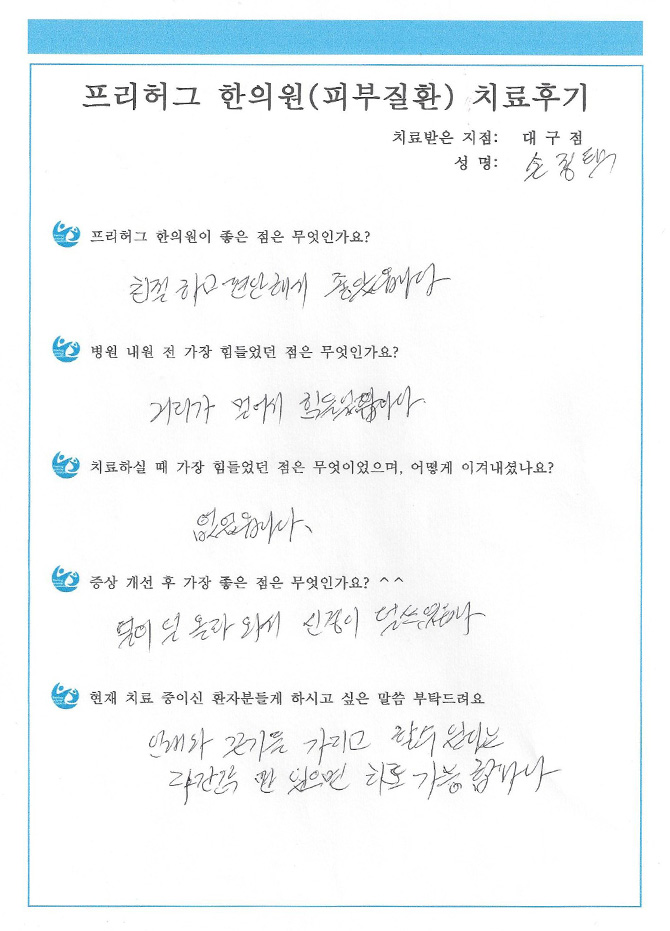 프리허그 한의원(피부질환) 치료후기
치료받은 지점: 대 구 점
성 명: 손정택
프리허그 한의원이 좋은 점은 무엇인가요?
친절 하고 편안해서 좋았읍니다
병원 내원 전 가장 힘들었던 점은 무엇인가요?
거리가 멀어서 힘들었읍니다.
치료하실 때 가장 힘들었던 점은 무엇이었으며, 어떻게 이겨내셨나요?
없었읍니다.
증상 개선 후 가장 좋은 점은 무엇인가요? ^^
덜 올라 와서 신경이 덜쓰였읍니다
현재 치료 중이신 환자분들게 하시고 싶은 말씀 부탁드려요
인내와 끈기를 가지고 할수 있다는
만 있으면 치료 가능 합니다